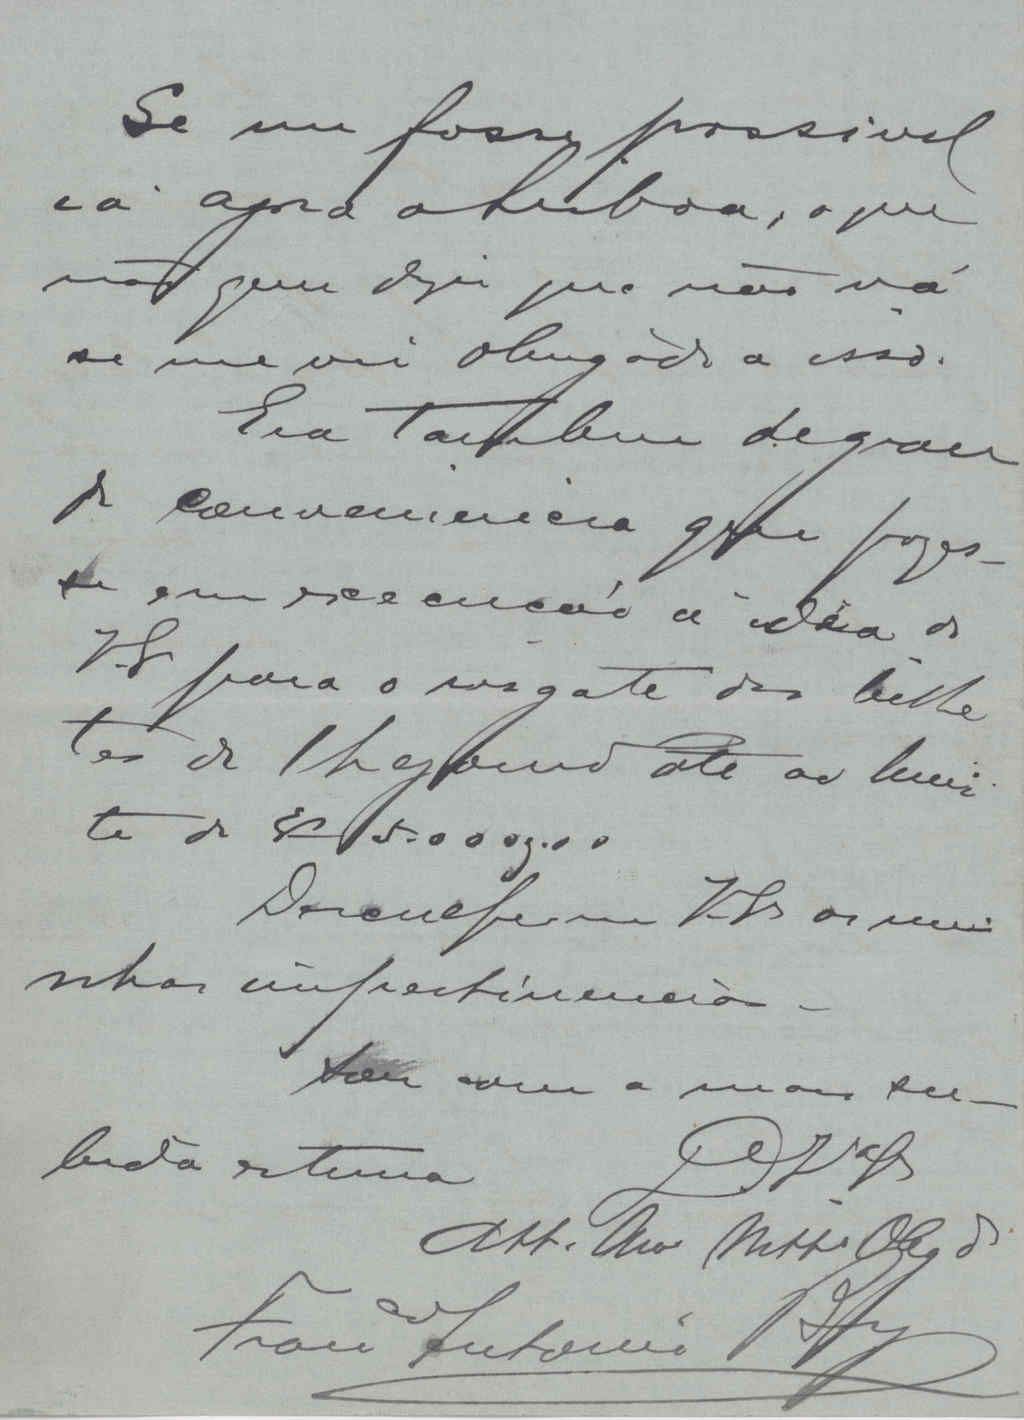 Se me fosse possivel
ia agora a Lisboa, o que
não quer dizer que não vá
se me vir obrigado a isso.
Era tambem de gran
de conveniencia que pozes-
se em execução a idêa de
V.S. para o resgate dos bilhe
tes de Thezouro até ao limi
te de 5.000
Desculpe-me V.S. as mi
nhas impertinencias -
Sou com a mais su-
bida estima
De V.S.
Att. Mto Obgdo
Franco Antonio